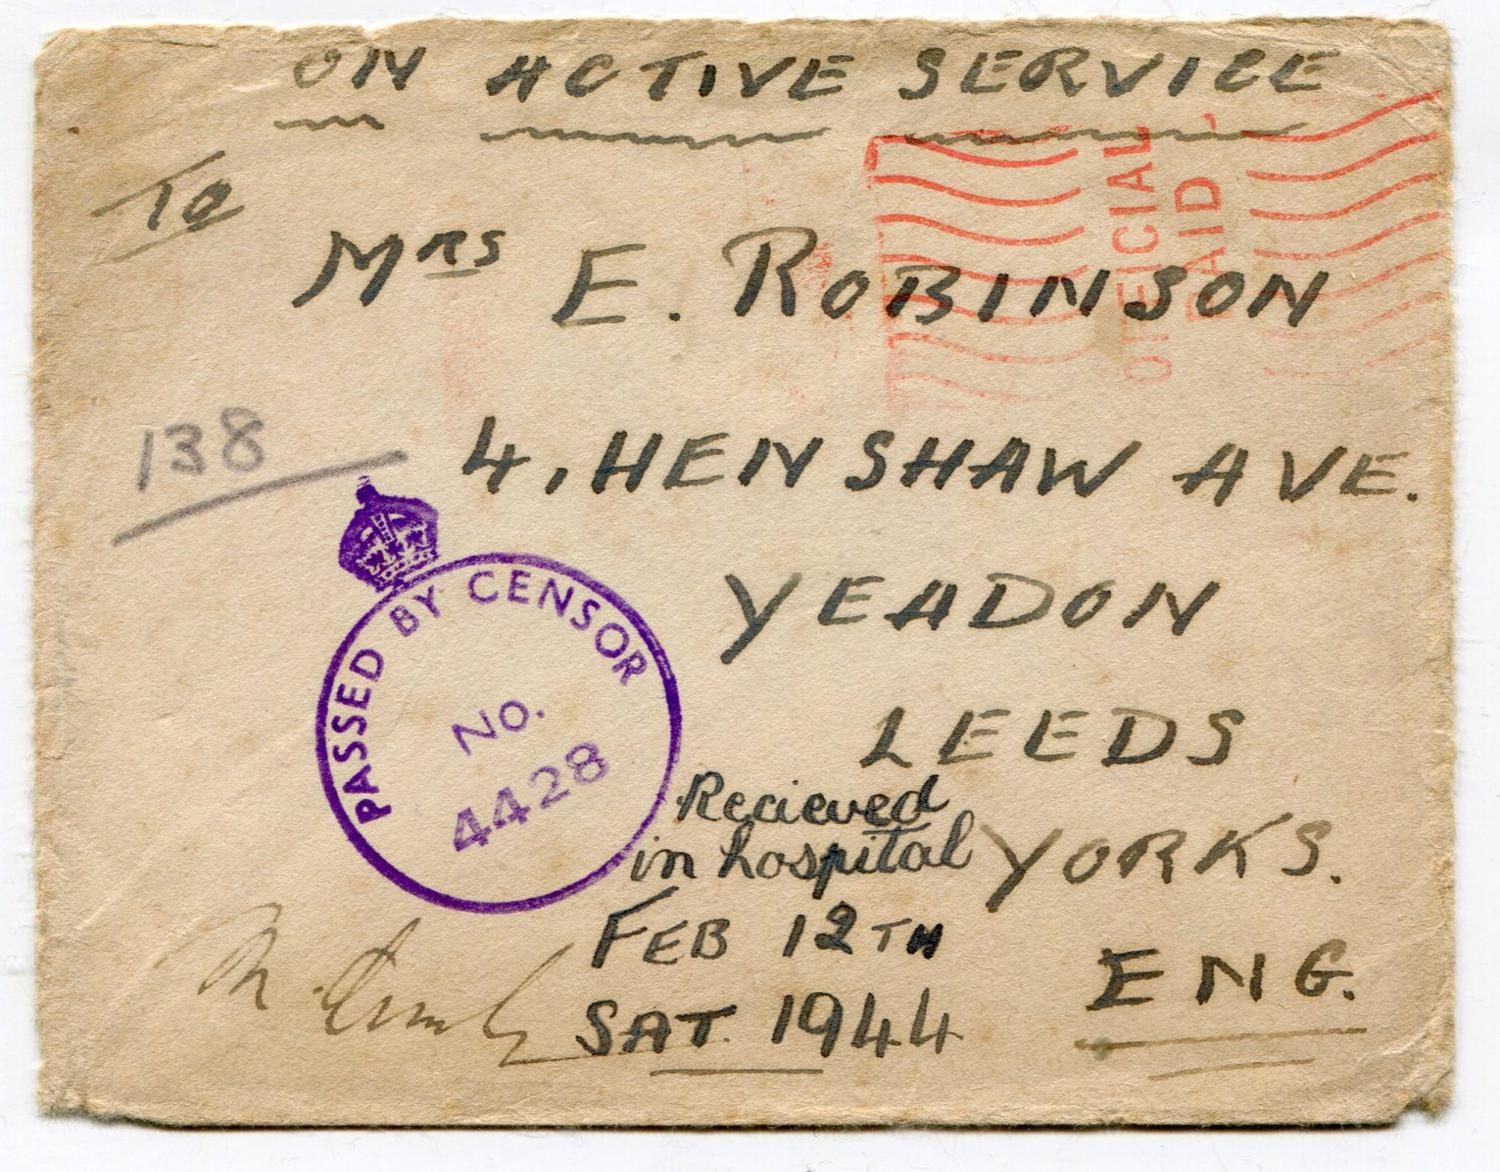 ON ACTIVE SERVICE
OFFICIAL
PAID
To
Mrs E. ROBINSON
138
4, HENSHAW AVE.
YEADON
LEEDS
YORKS.
ENG.
PASSED BY CENSOR
No.
4428
Recieved
in hospital
FEB 12TH
SAT. 1944